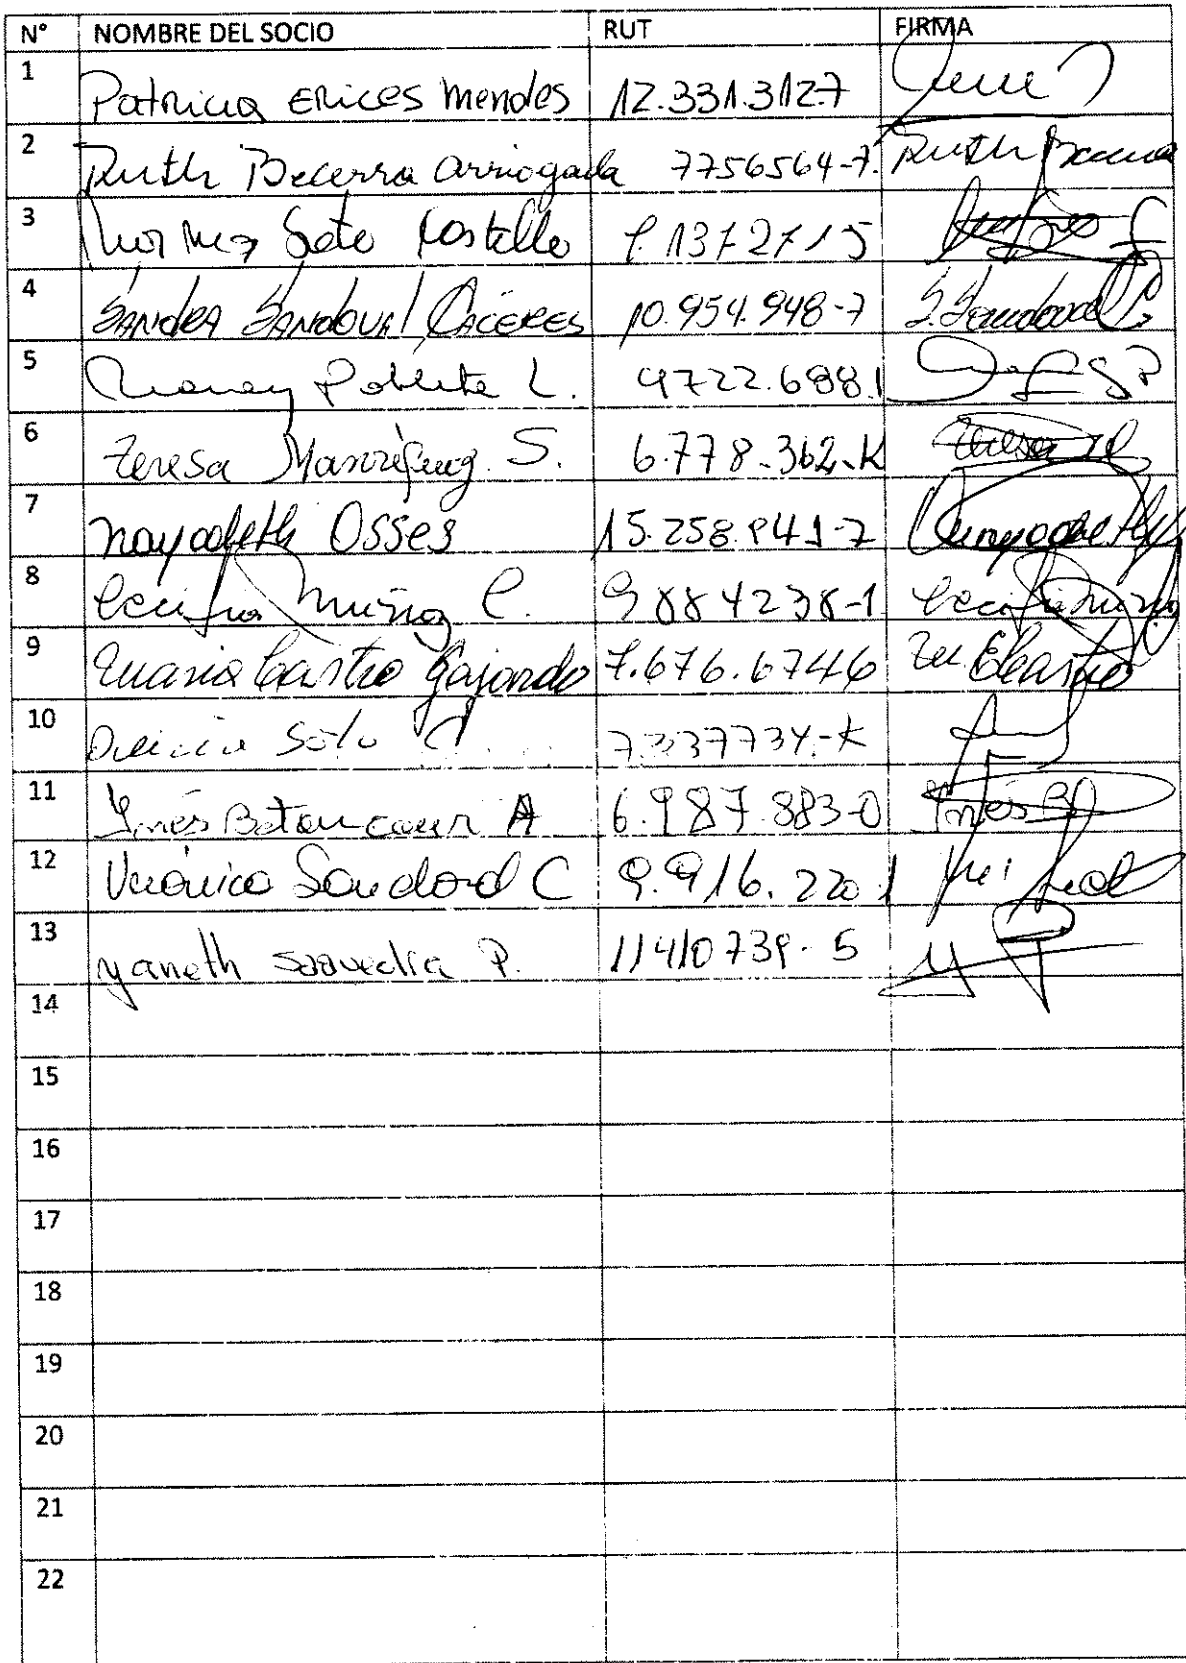 N° NOMBRE DEL SOCIO RUT FIRMA
1 Patricia Erices Mendes 12.331.312-7
2 Ruth Becerra Arriagada 7756564-7. Ruth Becerra
3 Soto
4 Sandra Sandoval Cáceres 10.954.948-7 S. Sandoval C
5 Poblete L. 9722.688.1
6 Teresa Manríquez S. 6.778.362-K Teresa M
7 Nayadeth Osses
8 Cecilia Muñoz C. 9884238-1 Cecilia Muñoz
9 Maria Castro Gajardo 7.676.6746
10 Soto 7337734-K
11 Inés Betancour A 6.987.883-0 Inés B
12 Verónica Sandoval C 9.916.220 1
13 Yaneth Saavedra P. 11410739-5
14
15
16
17
18
19
20
21
22